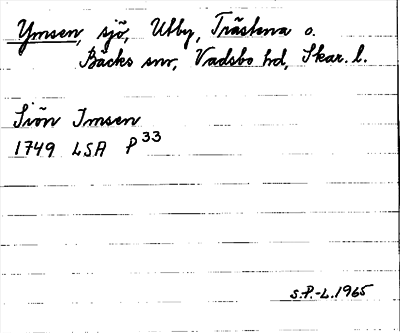 Ymsen, sjö, Utby, Trästena o.
Bäcks snr, Vadsbo hd, Skar. l.
Siön Imsen
1749 LSA P 33
S.P.-L. 1965